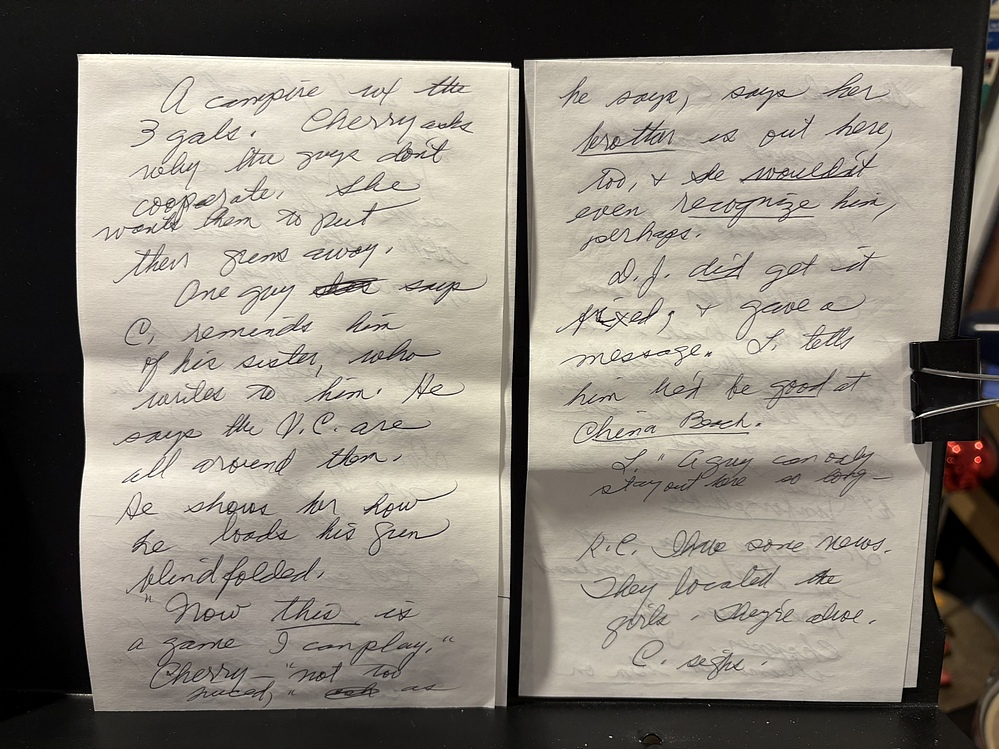 A campire w/ the
3 gals. Cherry asks
why the guys don't
cooperate. She
wants them to put
their guns away.
One guy says
C. reminds him
of his sister, who
writes to him. He
says the V.C. are
all around them.
He shows her how
he loads his gun
blindfolded.
"Now this is
a game I can play."
Cherry - "not too
" as
he says, says her
brother is out here,
too, & she wouldn't
even recognize him,
perhaps.
D.J. did get it
fixed, & gave a
message. L. tells
him he'd be good at
China Beach.
L. "A guy can only
stay out here so long—
K.C. I have some news.
They located the
girls. They're alive.
C. sighs.